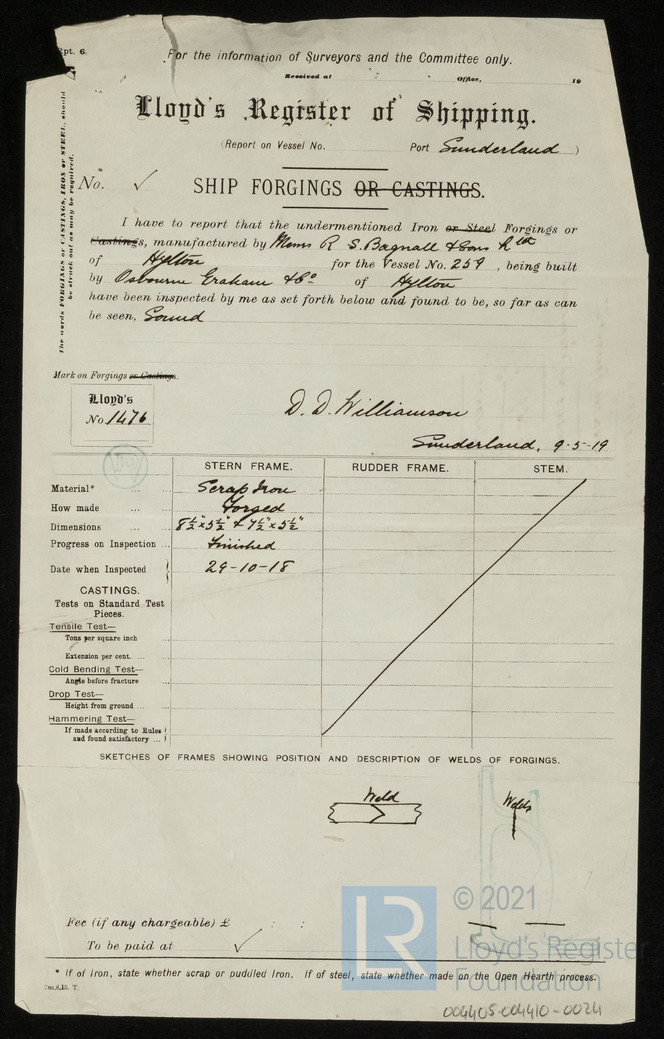 Rpt. 6.
For the information of Surveyors and the Committee only.
Received at Office, 19
Lloyd's Register of Shipping.
(Report on Vessel No. Port Sunderland )
The words FORGINGS or CASTINGS, IRON or STEEL, should be struck out as may be required.
No. ✓ SHIP FORGINGS OR CASTINGS.
I have to report that the undermentioned Iron or Steel Forgings or
Castings, manufactured by Messrs R. S. Bagnall & Sons Ltd
of Hylton for the Vessel No. 259 , being built
by Osbourne Graham & Co of Hylton
have been inspected by me as set forth below and found to be, so far as can
be seen, Sound
Mark on Forgings or Castings.
Lloyd's
No. 1476
D. D. Williamson
Sunderland, 9-5-19
STERN FRAME. RUDDER FRAME. STEM.
Material* ... ... Scrap Iron
How made ... ... Forged
Dimensions ... ... 8½" x 5½" & 7½" x 5½"
Progress on Inspection ... Finished
Date when Inspected 29-10-18
CASTINGS.
Tests on Standard Test
Pieces.
Tensile Test—
Tons per square inch ...
Extension per cent. ... ...
Cold Bending Test—
Angle before fracture ...
Drop Test—
Height from ground ... ...
Hammering Test—
If made according to Rules
and found satisfactory ...
SKETCHES OF FRAMES SHOWING POSITION AND DESCRIPTION OF WELDS OF FORGINGS.
Weld Welds
Fee (if any chargeable) £ : :
To be paid at ✓
* If of Iron, state whether scrap or puddled Iron. If of steel, state whether made on the Open Hearth process.
2m,8,15. T.
LR © 2021
Lloyd's Register
Foundation
004405-004410-0024